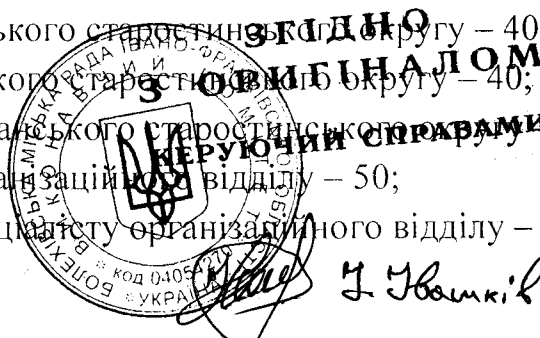 ького старостинського округу – 40
кого старостинського округу – 40;
анського старостинського округу
анізаційного відділу – 50;
ціалісту організаційного відділу –
ЗГІДНО
З ОРИГІНАЛОМ
КЕРУЮЧИЙ СПРАВАМИ
БОЛЕХІВСЬКА МІСЬКА РАДА ІВАНО-ФРАНКІВСЬКОЇ ОБЛ
ВИКОНАВЧИЙ КОМІТЕТ
УКРАЇНА
І. Івашків